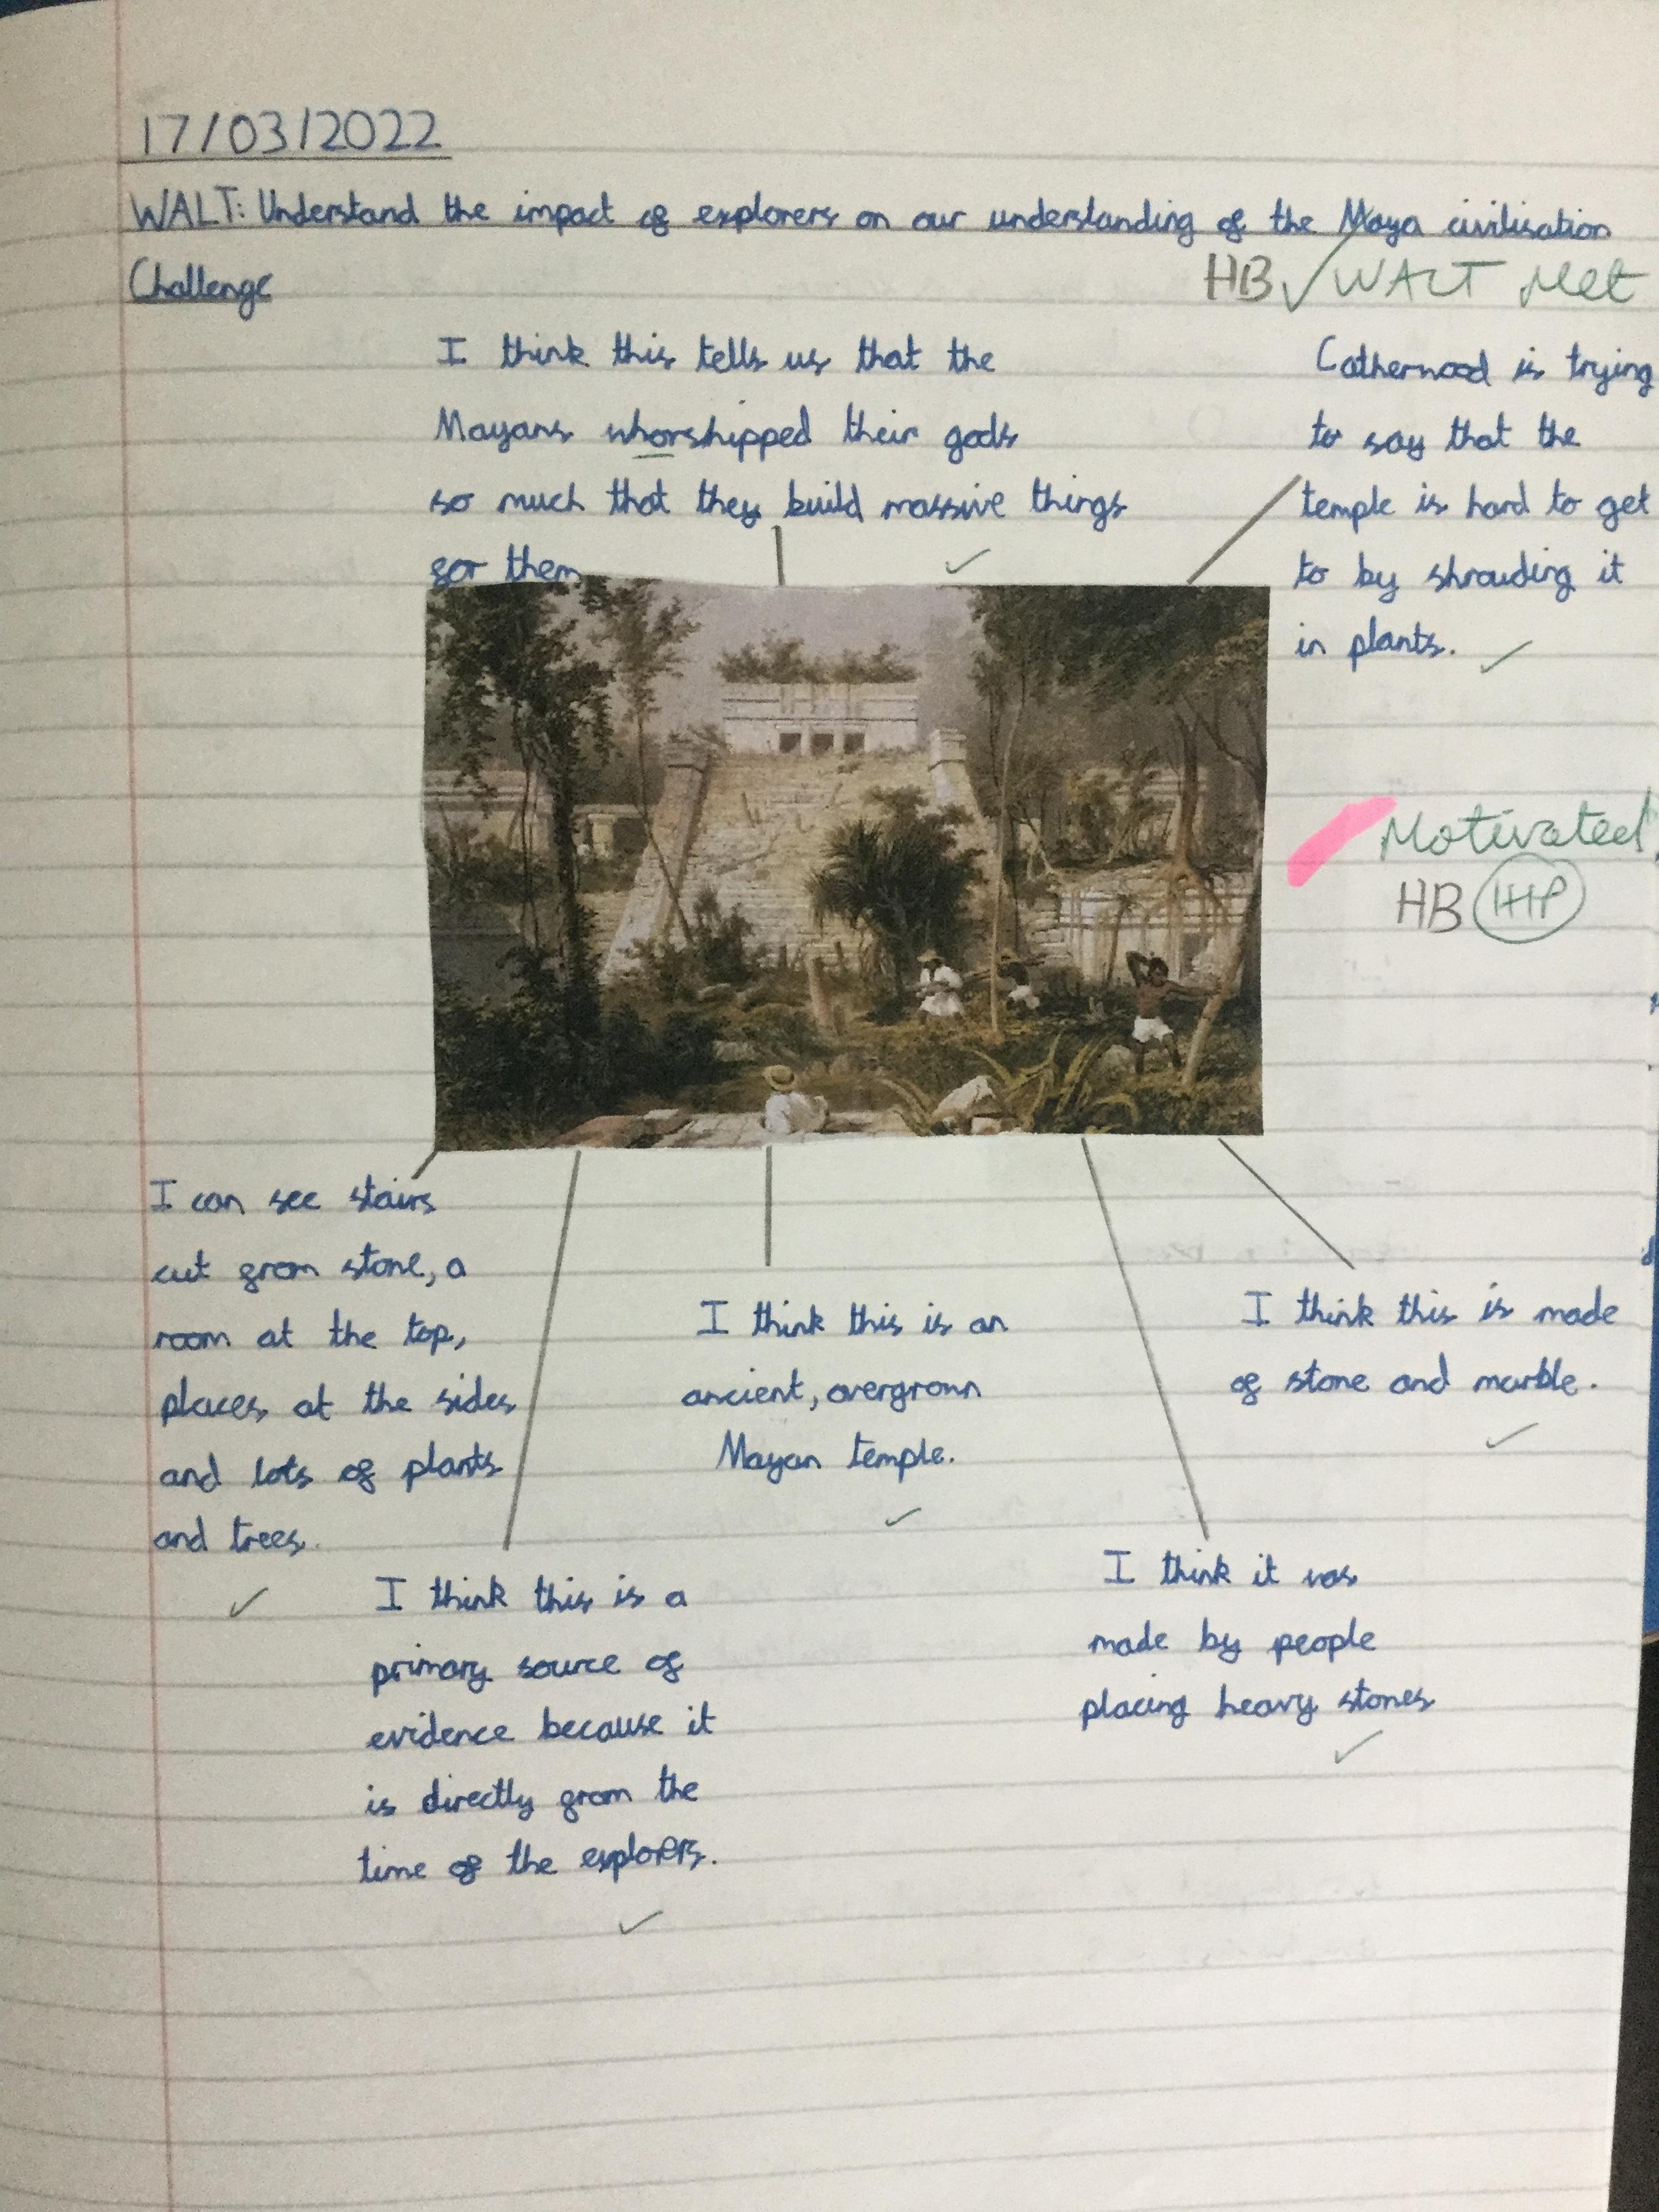 17/03/2022
WALT: Understand the impact of explorers on our understanding of the Maya civilisation
Challenge
HB ✓ WALT Met
I think this tells us that the
Mayans whorshipped their gods
so much that they build massive things
for them
✓
Catherwood is trying
to say that the
temple is hard to get
to by shrouding it
in plants. ✓
Motivated
HB 1HP
I can see stairs
cut from stone, a
room at the top,
places at the sides
and lots of plants
and trees.
✓
I think this is a
primary source of
evidence because it
is directly from the
time of the explorers.
✓
I think this is an
ancient, overgrown
Mayan temple.
✓
I think it was
made by people
placing heavy stones
✓
I think this is made
of stone and marble.
✓